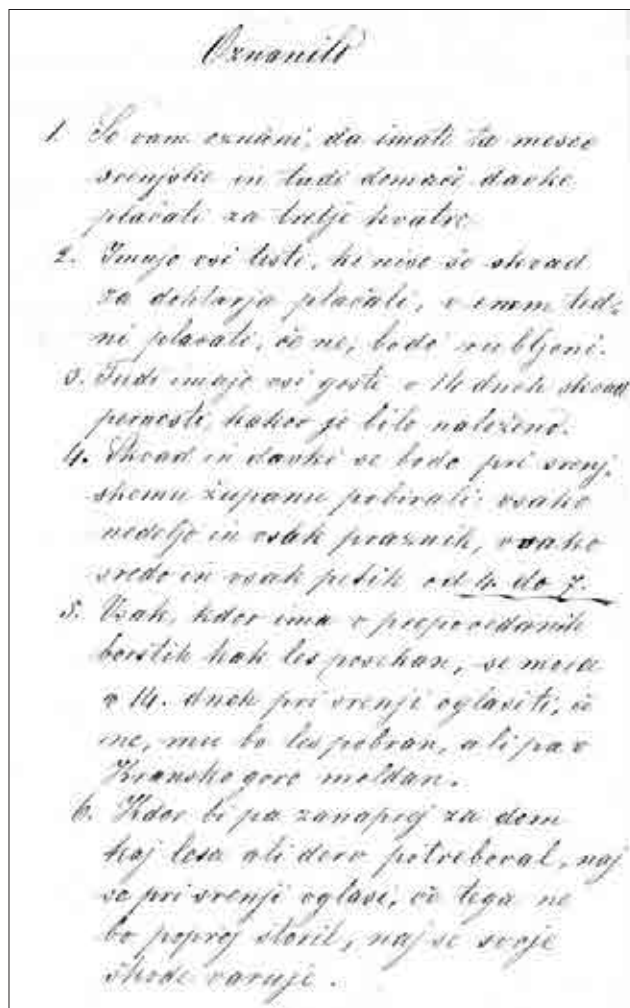 Oznanilo
1. Se vam oznani, da imate ta mesec
srenjske in tudi domače davke
plačati za tretje kvatre.
2. Imajo vsi tisti, ki niso še skvad
za dohtarja plačali, v enem ted-
ni plačati, če ne, bodo rubljeni.
3. Tudi imajo vsi gosti v 14 dneh skvad
pornesti, kakor je bilo naloženo.
4. Skvad in davki se bodo pri srenj-
skemu županu pobirali: vsako
nedeljo in vsak praznik, vsako
sredo in vsak petik od 4. do 7.
5. Vsak, kdor ima v prepovedanih
borštih kak les posekan, se mora
v 14. dneh pri srenji oglasiti, če
ne, mu bo les pobran, ali pa v
Kransko goro moldan.
6. Kdor bi pa zanaprej za dom
kaj lesa ali derv potreboval, naj
se pri srenji oglasi, če tega ne
bo poprej storil, naj se svoje
škode varuje.